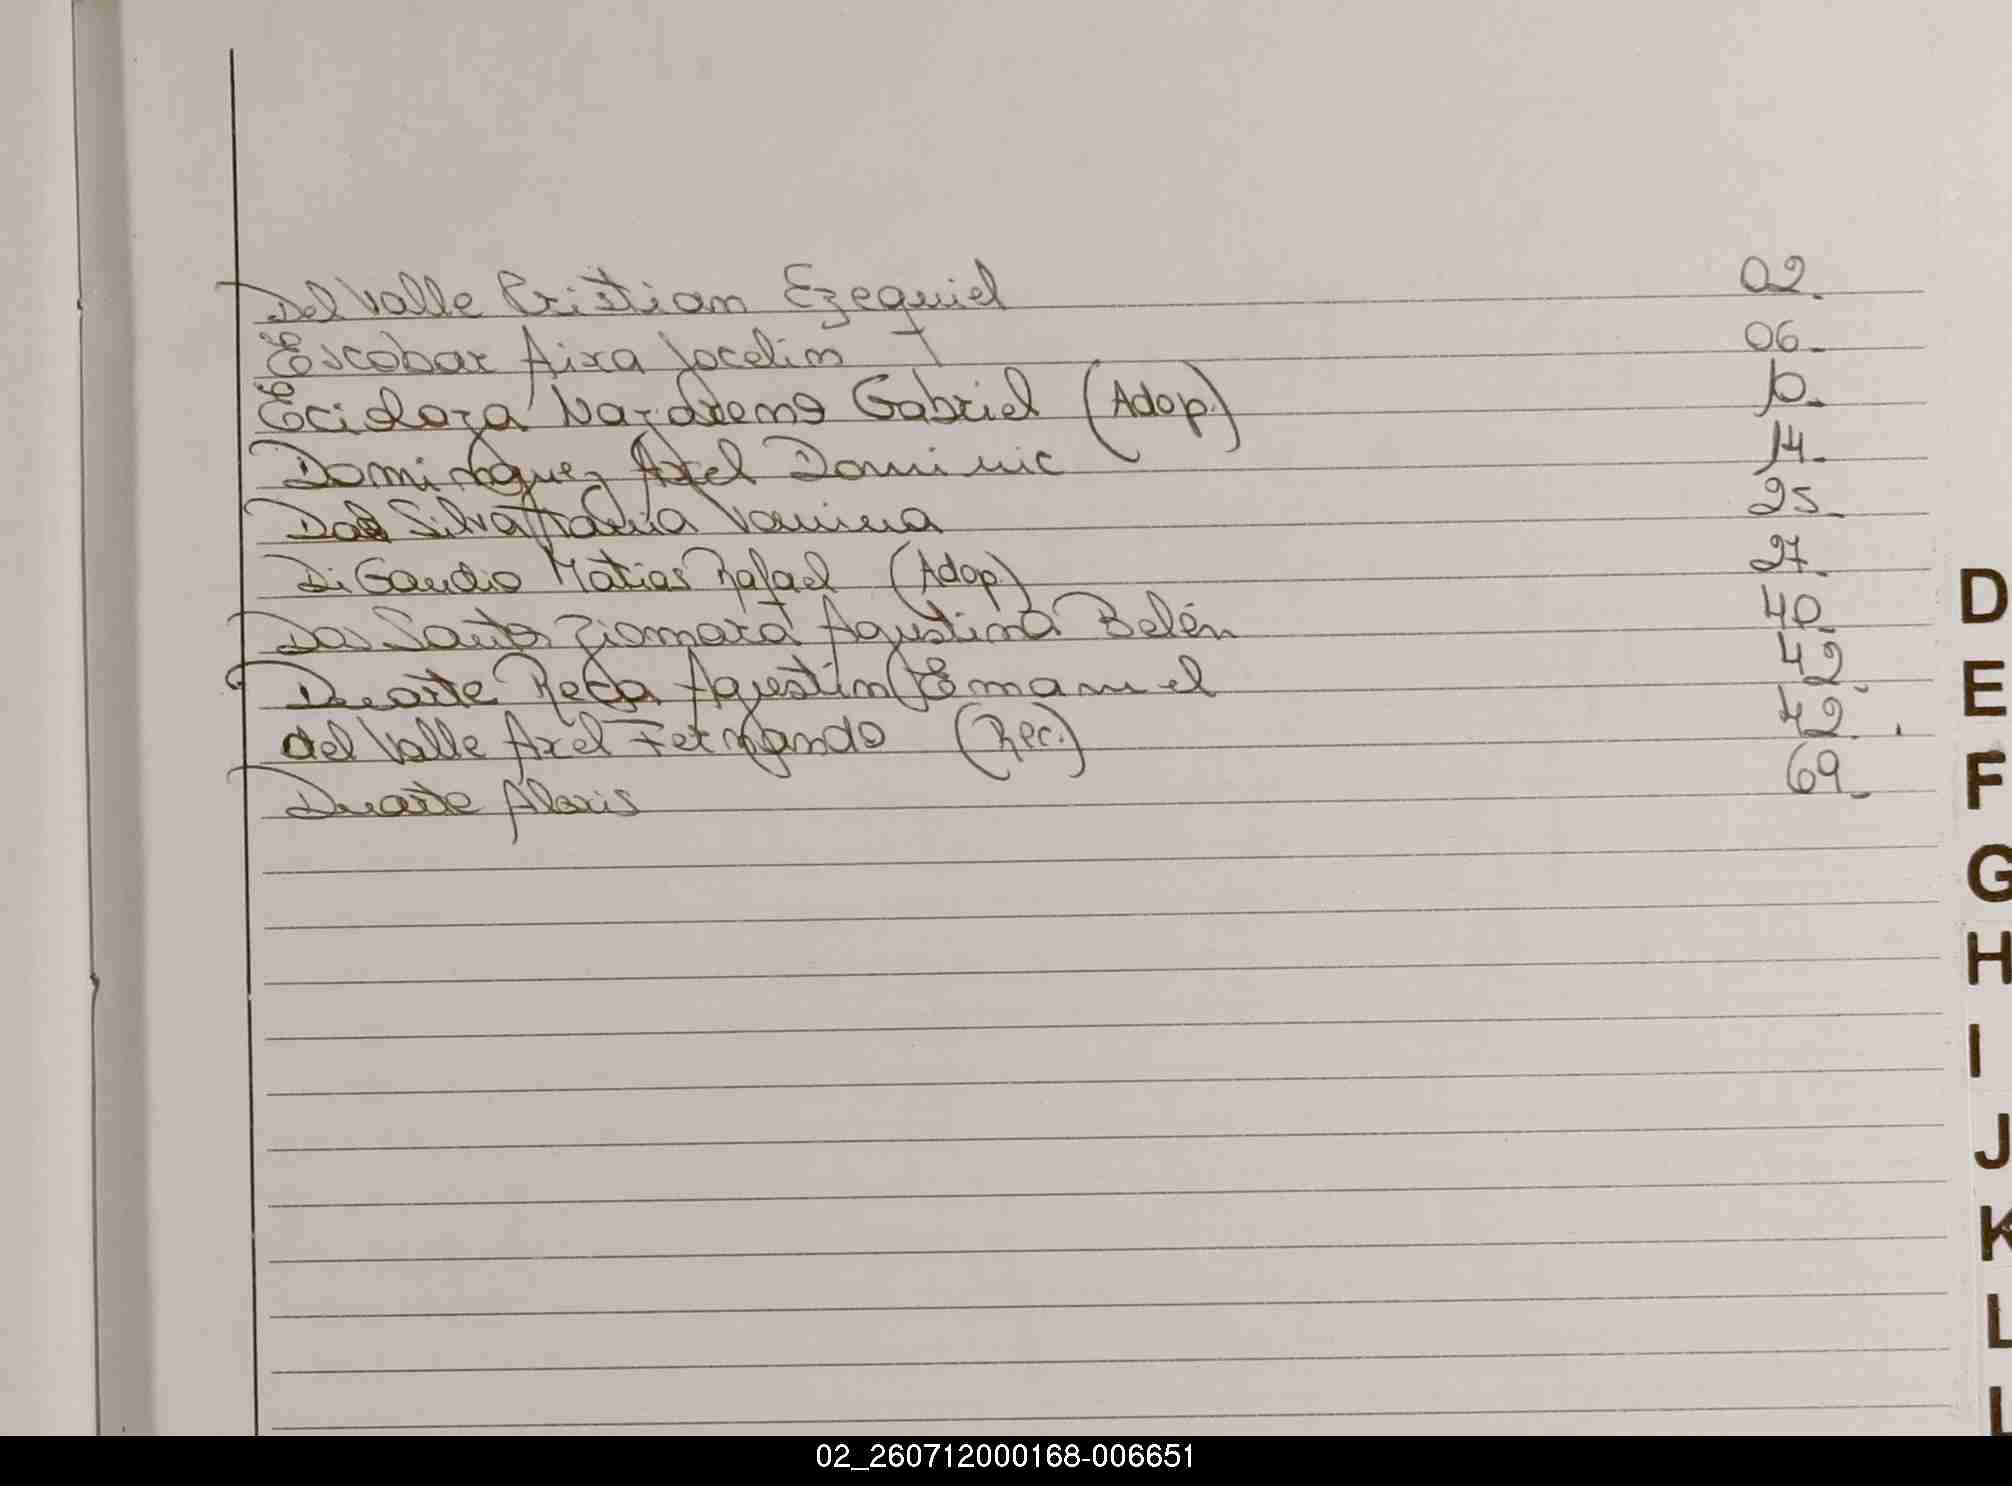 Del Valle Cristian Ezequiel 02.
Escobar Aixa Jocelin 06.
Gabriel (Adop.) 10.
Dominguez Axel Dominic 14.
Silva María Vanina 25.
Di Gaudio Matias Rafael (Adop.) 27.
Dos Santos Ziomara Agustina Belén 40.
Duarte Reda Agustín Emanuel 42.
del Valle Axel Fernando (Rec.) 42.
Duarte Alexis 69.
D
E
F
G
H
I
J
K
L
02_260712000168-006651